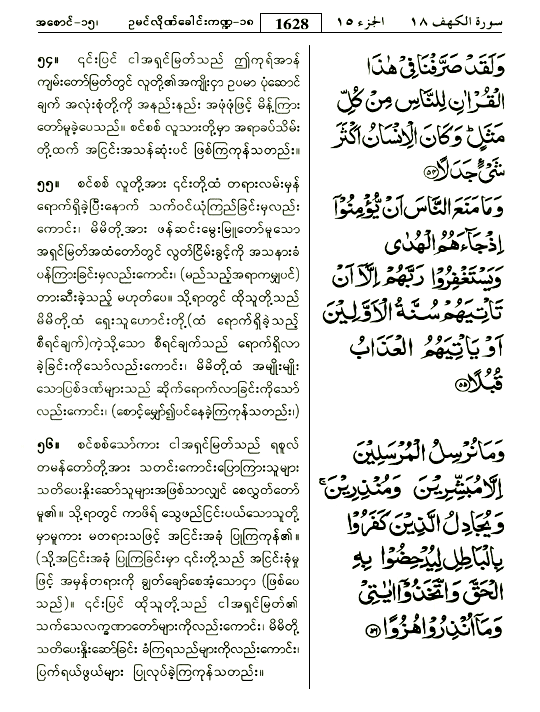 အစောင်-၁၅၊ ဥမင်လိုဏ်ခေါင်းကဏ္ဍ-၁၈ 1628 الجزء ١٥ سورة الكهف ١٨
၅၄။ ၎င်းပြင် ငါအရှင်မြတ်သည် ဤကုရ်အာန်
ကျမ်းတော်မြတ်တွင် လူတို့၏အကျိုးငှာ ဥပမာ ပုံဆောင်
ချက် အလုံးစုံတို့ကို အနည်းနည်း အဖုံဖုံဖြင့် မိန့်ကြား
တော်မူခဲ့ပေသည်။ စင်စစ် လူသားတို့မှာ အရာခပ်သိမ်း
တို့ထက် အငြင်းအသန်ဆုံးပင် ဖြစ်ကြကုန်သတည်း။
၅၅။ စင်စစ် လူတို့အား ၎င်းတို့ထံ တရားလမ်းမှန်
ရောက်ရှိခဲ့ပြီးနောက် သက်ဝင်ယုံကြည်ခြင်းမှလည်း
ကောင်း၊ မိမိတို့အား ဖန်ဆင်းမွေးမြူတော်မူသော
အရှင်မြတ်အထံတော်တွင် လွတ်ငြိမ်းခွင့်ကို အသနားခံ
ပန်ကြားခြင်းမှလည်းကောင်း၊ (မည်သည့်အရာကမျှပင်)
တားဆီးခဲ့သည် မဟုတ်ပေ။ သို့ရာတွင် ထိုသူတို့သည်
မိမိတို့ထံ ရှေးသူဟောင်းတို့(ထံ ရောက်ရှိခဲ့သည့်
စီရင်ချက်)ကဲ့သို့သော စီရင်ချက်သည် ရောက်ရှိလာ
ခဲ့ခြင်းကိုသော်လည်းကောင်း၊ မိမိတို့ထံ အမျိုးမျိုး
သောပြစ်ဒဏ်များသည် ဆိုက်ရောက်လာခြင်းကိုသော်
လည်းကောင်း၊ (စောင့်မျှော်၍ပင်နေခဲ့ကြကုန်သတည်း၊)
၅၆။ စင်စစ်သော်ကား ငါအရှင်မြတ်သည် ရစူလ်
တမန်တော်တို့အား သတင်းကောင်းပြောကြားသူများ
သတိပေးနှိုးဆော်သူများအဖြစ်သာလျှင် စေလွှတ်တော်
မူ၏။ သို့ရာတွင် ကာဖိရ် သွေဖည်ငြင်းပယ်သောသူတို့
မှာမူကား မတရားသဖြင့် အငြင်းအခုံ ပြုကြကုန်၏။
(သို့အငြင်းအခုံ ပြုကြခြင်းမှာ ၎င်းတို့သည် အငြင်းခုံမှု
ဖြင့် အမှန်တရားကို ချွတ်ချော်စေအံ့သောငှာ (ဖြစ်ပေ
သည်)။ ၎င်းပြင် ထိုသူတို့သည် ငါအရှင်မြတ်၏
သက်သေလက္ခဏာတော်များကိုလည်းကောင်း၊ မိမိတို့
သတိပေးနှိုးဆော်ခြင်း ခံကြရသည်များကိုလည်းကောင်း၊
ပြက်ရယ်ဖွယ်များ ပြုလုပ်ခဲ့ကြကုန်သတည်း။
وَلَقَدْ صَرَّفْنَا فِىْ هٰذَا
الْقُرْاٰنِ لِلنَّاسِ مِنْ كُلِّ
مَثَلٍ ؕ وَكَانَ الْاِنْسَانُ اَكْثَرَ
شَىْءٍ جَدَلًا ﴿۵۴﴾
وَمَا مَنَعَ النَّاسَ اَنْ يُّؤْمِنُوْۤا
اِذْ جَآءَهُمُ الْهُدٰى
وَيَسْتَغْفِرُوْا رَبَّهُمْ اِلَّاۤ اَنْ
تَاْتِيَهُمْ سُنَّةُ الْاَوَّلِيْنَ
اَوْ يَاْتِيَهُمُ الْعَذَابُ
قُبُلًا ﴿۵۵﴾
وَمَا نُرْسِلُ الْمُرْسَلِيْنَ
اِلَّا مُبَشِّرِيْنَ وَمُنْذِرِيْنَ ۚ
وَيُجَادِلُ الَّذِيْنَ كَفَرُوْا
بِالْبَاطِلِ لِيُدْحِضُوْا بِهِ
الْحَقَّ وَاتَّخَذُوْۤا اٰيٰتِىْ
وَمَاۤ اُنْذِرُوْا هُزُوًا ﴿۵۶﴾